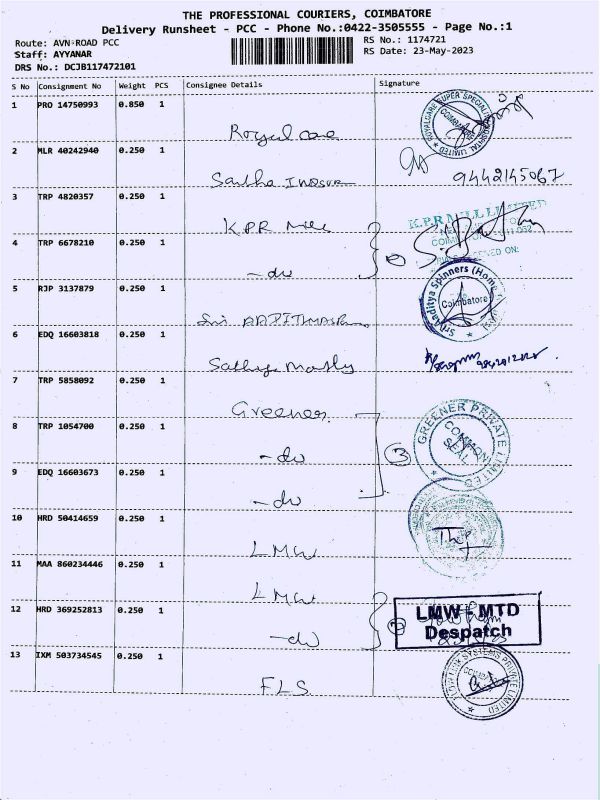 THE PROFESSIONAL COURIERS, COIMBATORE
Delivery Runsheet - PCC - Phone No.:0422-3505555 - Page No.:1
Route: AVN-ROAD PCC
RS No.: 1174721
Staff: AYYANAR
RS Date: 23-May-2023
DRS No.: DCJB117472101
S No Consignment No Weight PCS Consignee Details Signature
1 PRO 14750993 0.850 1
Royal care
2 MLR 40242940 0.250 1
9442145067
3 TRP 4820357 0.250 1
KPR Mill
K.P.R MILL LIMITED
4 TRP 6678210 0.250 1
-do
2
5 RJP 3137879 0.250 1
Sri Aaditya Spinners (Home
Coimbatore
6 EDQ 16603818 0.250 1
7 TRP 5858092 0.250 1
Greener
8 TRP 1054700 0.250 1
-do
3
GREENER PRIVATE LIMITED
COMMON
SEAL
9 EDQ 16603673 0.250 1
-do
10 HRD 50414659 0.250 1
LMW
11 MAA 860234446 0.250 1
LMW
12 HRD 369252813 0.250 1
-do
2
LMW - MTD
Despatch
13 IXM 503734545 0.250 1
FLS